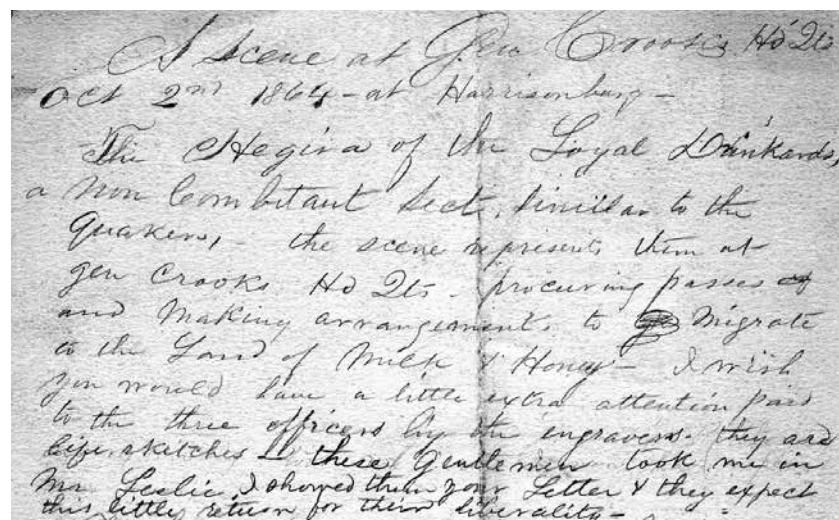 A Scene at Gen Crook's Hd Qts
Oct 2nd 1864 - at Harrisonburg -
The Hegira of the Loyal Dunkards,
a Non Combitant Sect, similar to the
Quakers, - the scene represents them at
gen Crooks Hd Qts - procuring passes
and Making arrangements to Migrate
to the Land of Milk & Honey - I wish
you would have a little extra attention paid
to the three officers by the engravers. they are
life sketches - these Gentlemen took me in
Mr Leslie, I showed them your Letter & they expect
this little return for their liberality -